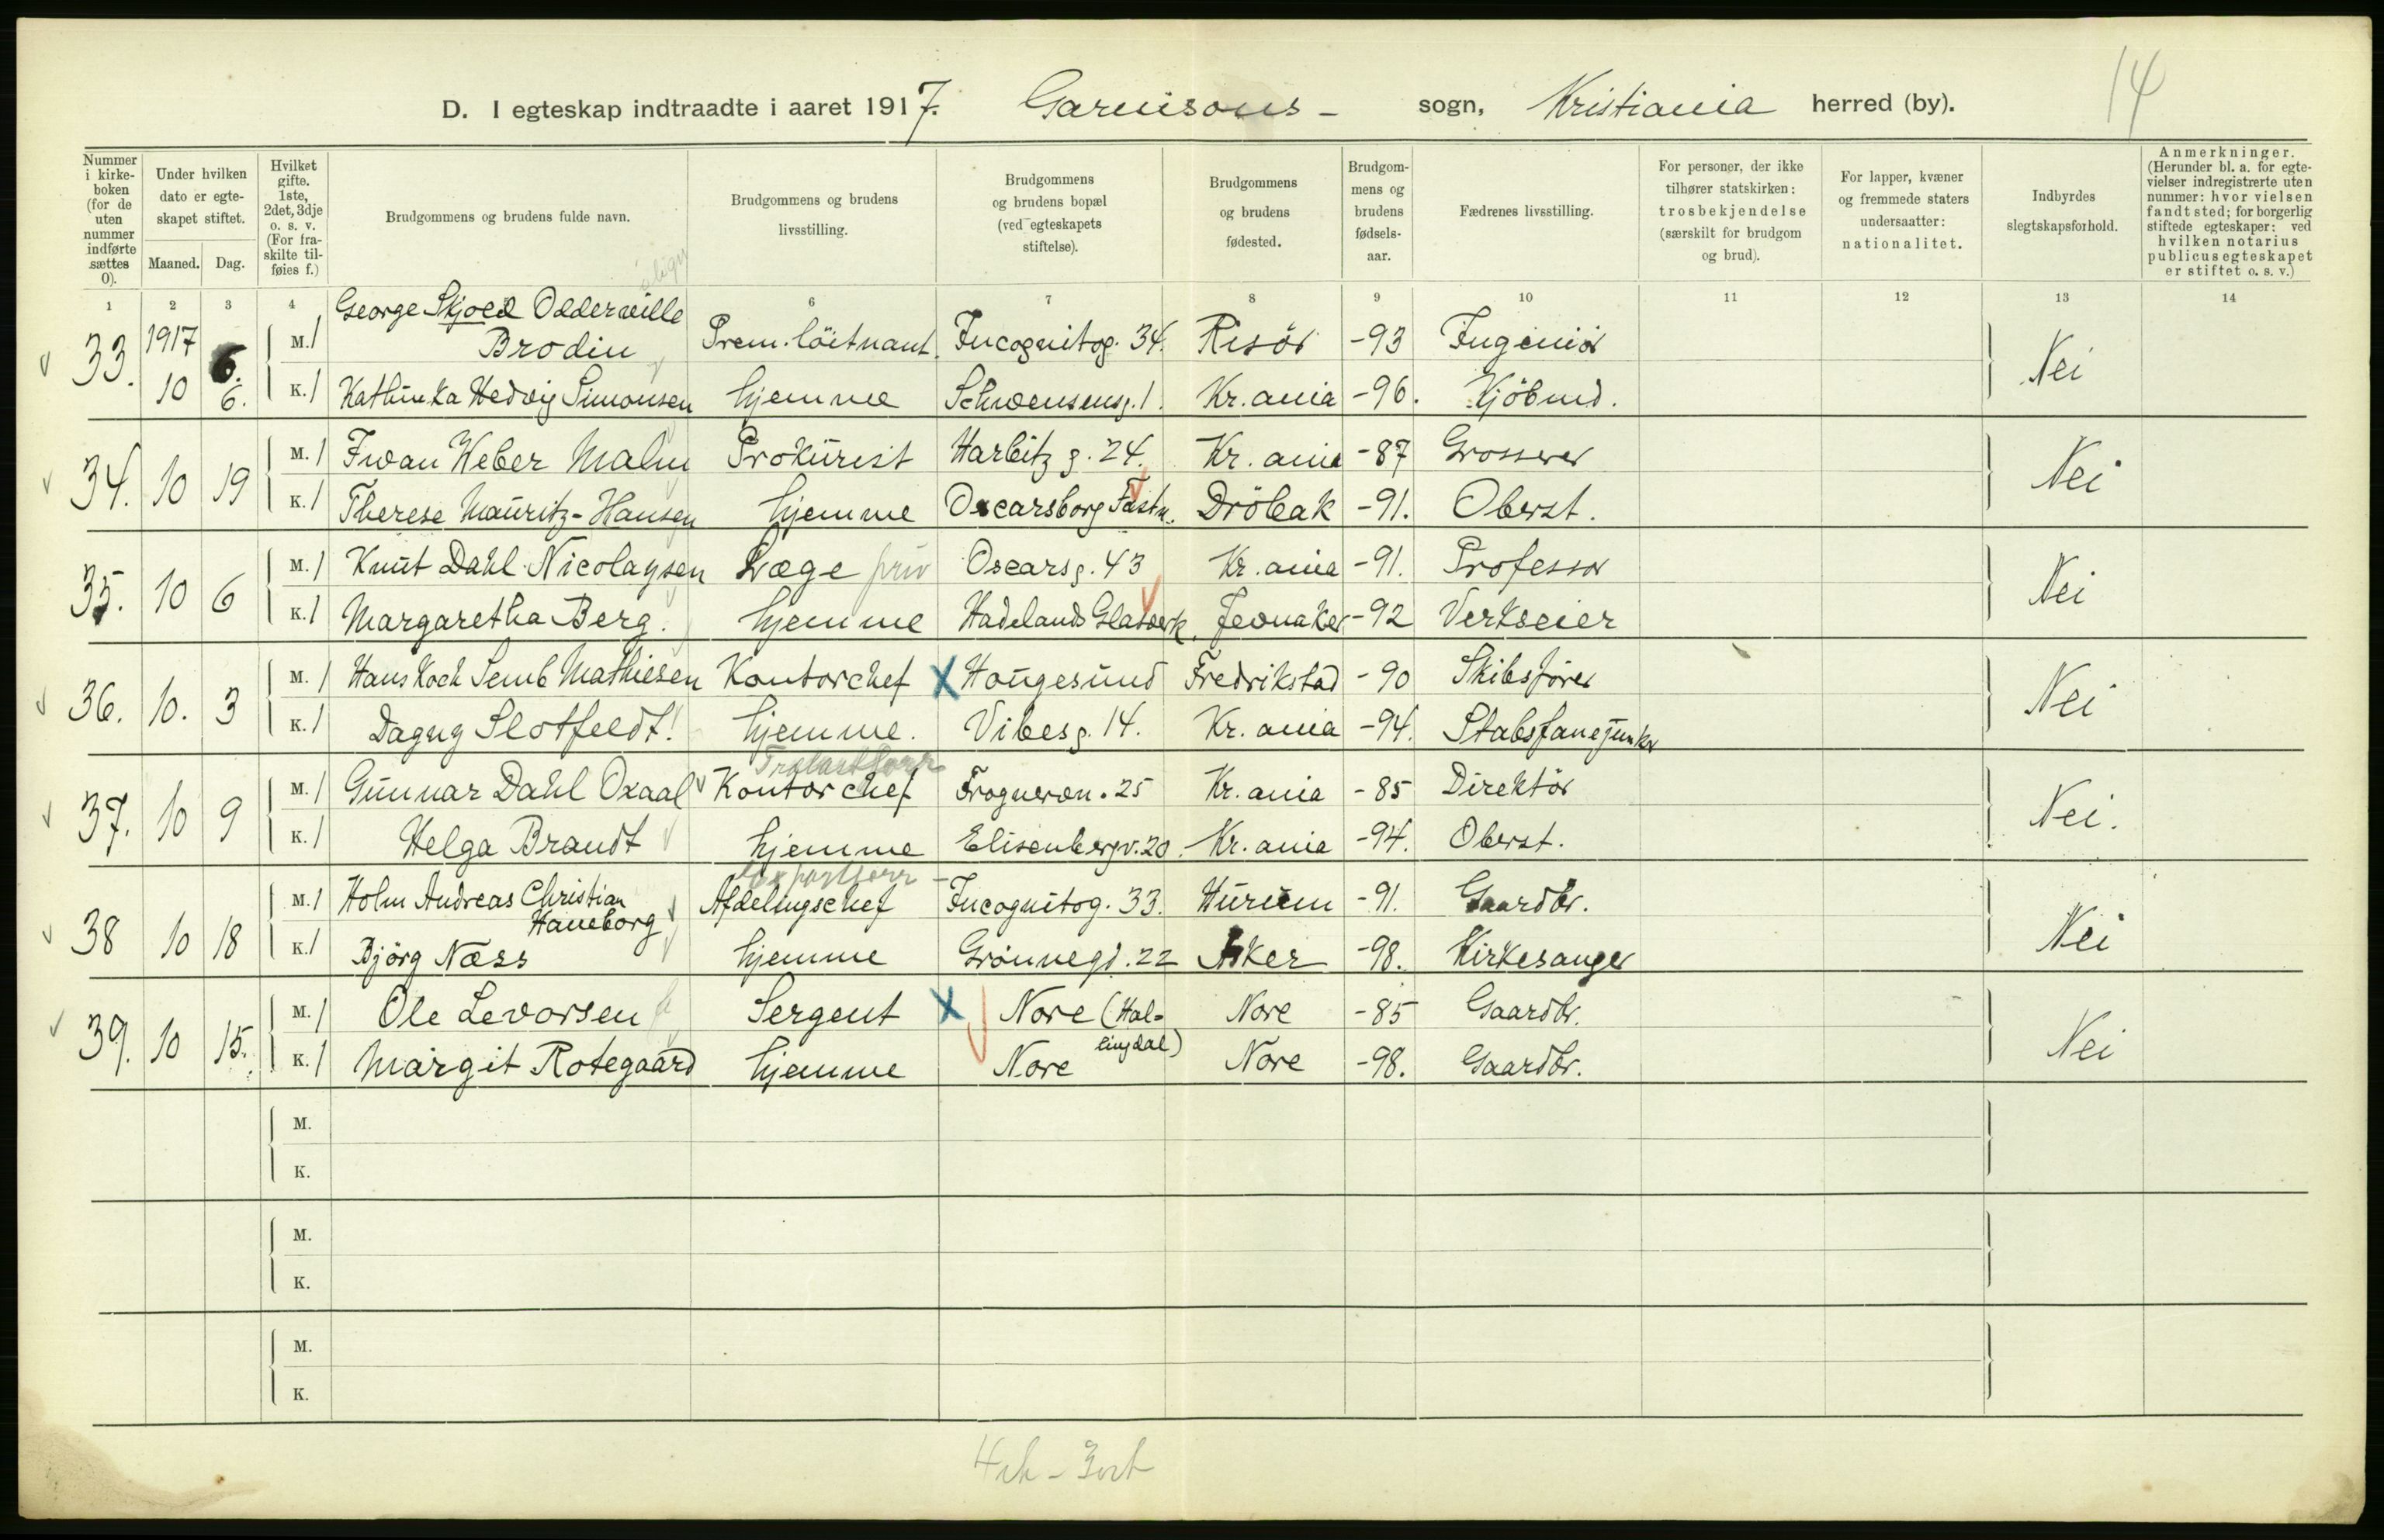 14
D. I egteskap indtraadte i aaret 1917. Garnisons- sogn, Kristiania herred (by).
Nummer i kirkeboken (for de uten nummer indførte sættes 0).
Under hvilken dato er egteskapet stiftet.
Maaned. Dag.
Hvilket gifte. 1ste, 2det, 3dje o. s. v. (For fraskilte tilføies f.)
Brudgommens og brudens fulde navn.
Brudgommens og brudens livsstilling.
Brudgommens og brudens bopæl (ved egteskapets stiftelse).
Brudgommens og brudens fødested.
Brudgommens og brudens fødselsaar.
Fædrenes livsstilling.
For personer, der ikke tilhører statskirken: trosbekjendelse (særskilt for brudgom og brud).
For lapper, kvæner og fremmede staters undersaatter: nationalitet.
Indbyrdes slegtskapsforhold.
Anmerkninger. (Herunder bl. a. for egtevielser indregistrerte uten nummer: hvor vielsen fandt sted; for borgerlig stiftede egteskaper: ved hvilken notarius publicus egteskapet er stiftet o. s. v.)
1 2 3 4 6 7 8 9 10 11 12 13 14
33. 1917 10 6. 6.
M. 1 George Skjold Odderville Brodin Prem. löitnant. Incognitog. 34. Risör -93 Ingeniör Nei
K. 1 Kathinka Hedvig Simonsen hjemme Schwensensg. 1. Kr.ania -96. Kjöbmd.
34. 10 19
M. 1 Iwan Weber Malm Prokurist Harbitz g. 24. Kr.ania -87 Grosserer Nei
K. 1 Therese Mauritz-Hansen hjemme Oscarsborg Fæstn. Dröbak -91. Oberst.
35. 10 6
M. 1 Knut Dahl Nicolaysen Læge priv Oscarsg. 43 Kr.ania -91. Professor Nei
K. 1 Margaretha Berg. hjemme Hadelands Glasverk. Jevnaker -92 Verkseier
36. 10. 3
M. 1 Hans Koch Semb Mathiesen Kontorchef X Haugesund Fredrikstad -90 Skibsförer Nei
K. 1 Dagny Slotfeldt! hjemme. Vibesg. 14. Kr.ania -94. Stabsfanejunker
37. 10 9
M. 1 Gunnar Dahl Oxaal Kontorchef Frogneren. 25 Kr.ania -85 Direktör Nei.
K. 1 Helga Brandt hjemme Elisenbergv. 20. Kr.ania -94. Oberst.
38 10 18
M. 1 Holm Andreas Christian Haneborg Afdelingschef Incognitog. 33. Hurum -91. Gaardbr. Nei
K. 1 Bjørg Næss hjemme Grönnegd. 22 Aker -98. Kirkesanger
39. 10 15.
M. 1 Ole Levorsen Sergent X Nore (Hallingdal) Nore -85 Gaardbr. Nei
K. 1 Margit Rotegaard hjemme Nore Nore -98. Gaardbr.
M.
K.
M.
K.
M.
K.